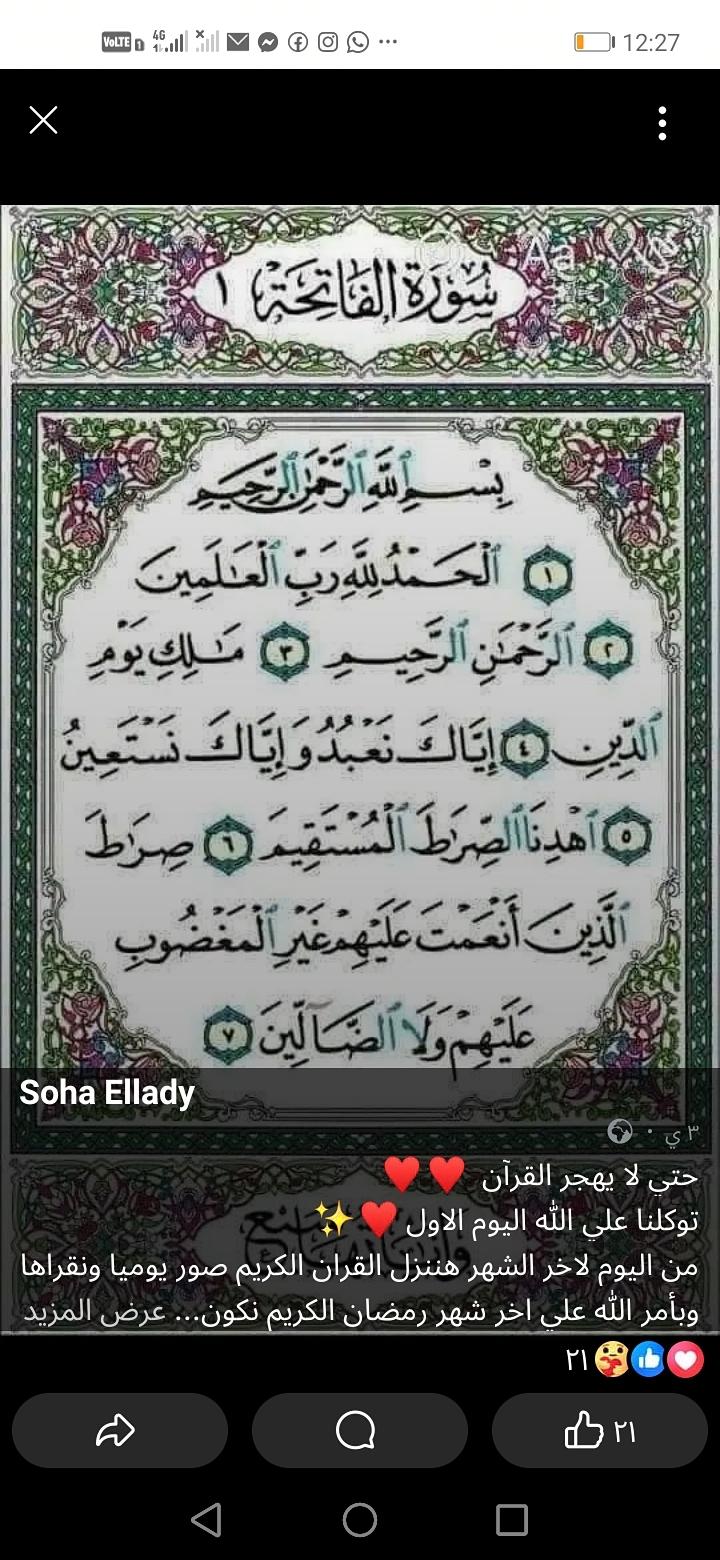 VoLTE 1 4G 12:27
Aa
سُورَةُ الفَاتِحَة ١
بِسْمِ ٱللَّهِ ٱلرَّحْمَٰنِ ٱلرَّحِيمِ
١ ٱلْحَمْدُ لِلَّهِ رَبِّ ٱلْعَٰلَمِينَ
٢ ٱلرَّحْمَٰنِ ٱلرَّحِيمِ ٣ مَٰلِكِ يَوْمِ
ٱلدِّينِ ٤ إِيَّاكَ نَعْبُدُ وَإِيَّاكَ نَسْتَعِينُ
٥ ٱهْدِنَا ٱلصِّرَٰطَ ٱلْمُسْتَقِيمَ ٦ صِرَٰطَ
ٱلَّذِينَ أَنْعَمْتَ عَلَيْهِمْ غَيْرِ ٱلْمَغْضُوبِ
عَلَيْهِمْ وَلَا ٱلضَّآلِّينَ ٧
Soha Ellady
٣ ي ·
حتي لا يهجر القرآن ♥️ ♥️
توكلنا علي الله اليوم الاول ♥️ ✨
من اليوم لاخر الشهر هننزل القران الكريم صور يوميا ونقراها
وبأمر الله علي اخر شهر رمضان الكريم نكون... عرض المزيد
٢١
٢١